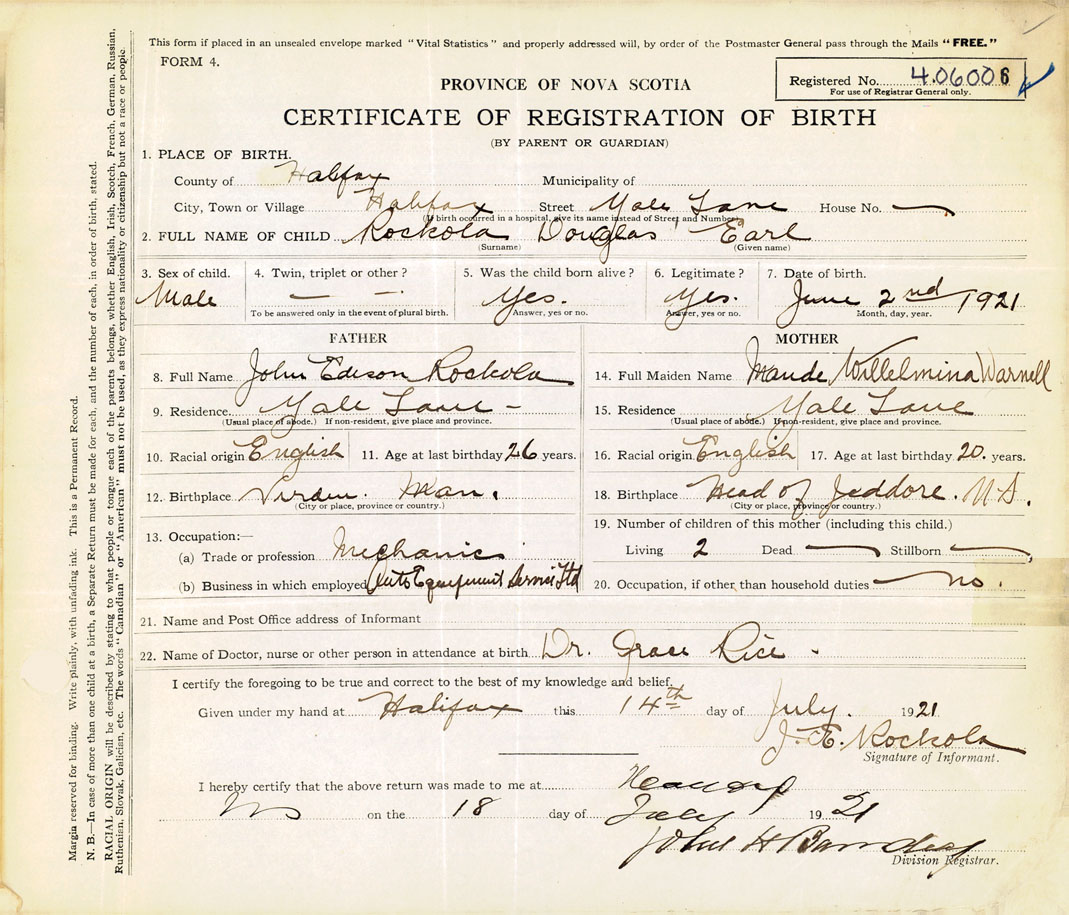 This form if placed in an unsealed envelope marked "Vital Statistics" and properly addressed will, by order of the Postmaster General pass through the Mails "FREE."
FORM 4.
Registered No. 406006
For use of Registrar General only.
PROVINCE OF NOVA SCOTIA
CERTIFICATE OF REGISTRATION OF BIRTH
(BY PARENT OR GUARDIAN)
1. PLACE OF BIRTH.
County of Halifax Municipality of
City, Town or Village Halifax Street Yale Lane House No. —
(If birth occurred in a hospital, give its name instead of Street and Number)
2. FULL NAME OF CHILD Rockola Douglas Earl
(Surname) (Given name)
3. Sex of child. 4. Twin, triplet or other? 5. Was the child born alive? 6. Legitimate? 7. Date of birth.
Male — — Yes. Yes. June 2nd 1921
To be answered only in the event of plural birth. Answer, yes or no. Answer, yes or no. Month, day, year.
FATHER
8. Full Name John Edison Rockola
9. Residence. Yale Lane –
(Usual place of abode.) If non-resident, give place and province.
10. Racial origin English 11. Age at last birthday 26 years.
12. Birthplace Virden. Man.
(City or place, province or country.)
13. Occupation:—
(a) Trade or profession Mechanic
(b) Business in which employed Auto Equipment Service Ltd
MOTHER
14. Full Maiden Name Maude Willelmina Warnell
15. Residence Yale Lane
(Usual place of abode.) If non-resident, give place and province.
16. Racial origin English 17. Age at last birthday 20. years.
18. Birthplace Head of Jeddore. N.S.
(City or place, province or country.)
19. Number of children of this mother (including this child.)
Living 2 Dead — Stillborn —
20. Occupation, if other than household duties — no.
21. Name and Post Office address of Informant
22. Name of Doctor, nurse or other person in attendance at birth Dr. Grace Rice -
I certify the foregoing to be true and correct to the best of my knowledge and belief.
Given under my hand at Halifax this 14th day of July. 1921
J. E. Rockola
Signature of Informant.
I hereby certify that the above return was made to me at
on the 18 day of July 1921
John H Barnes
Division Registrar.
Margin reserved for binding. Write plainly, with unfading ink. This is a Permanent Record.
N. B.—In case of more than one child at a birth, a Separate Return must be made for each, and the number of each, in order of birth, stated.
RACIAL ORIGIN will be described by stating to what people or tongue each of the parents belongs, whether English, Irish, Scotch, French, German, Russian,
Ruthenian, Slovak, Galician, etc. The words "Canadian" or "American" must not be used, as they express nationality or citizenship but not a race or people.